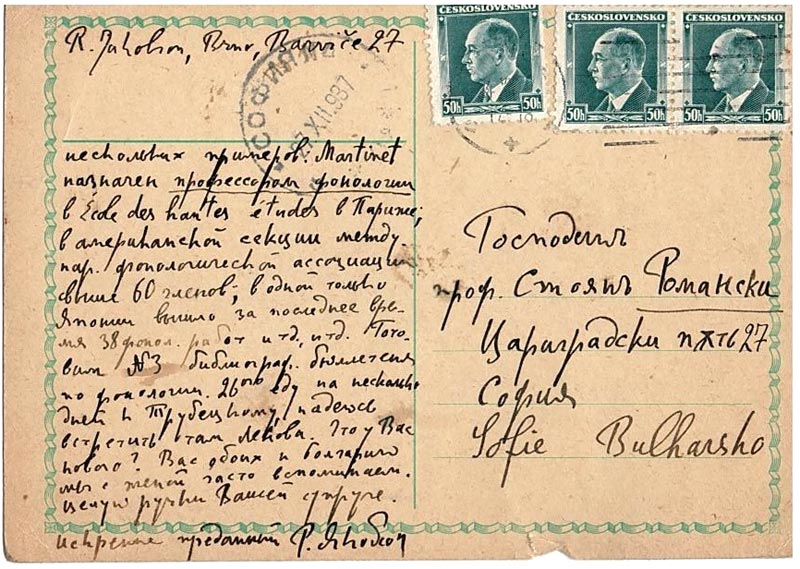 R. Jakobson, Brno, Barviče 27
ČESKOSLOVENSKO
ČESKOSLOVENSKO
ČESKOSLOVENSKO
50h
50h 50h
50h 50h
СОФИЯ
27.XII.937
нескольких примеров. Martinet
назначен профессором фонологии
в École des hautes études в Париже;
в американской секции между-
нар. фонологической ассоциации
свыше 60 членов; в одной только
Японии вышло за последнее вре-
мя 38 фонол. работ и т.д., и т.д. Гото-
вим №3 библиограф. бюллетеня
по фонологии. 26ого еду на несколько
дней к Трубецкому, надеюсь
встретить там Лекова. Что у Вас
нового? Вас обоих и Болгарию
мы с женой часто вспоминаем.
Целую ручки Вашей супруге.
искренне преданный Р. Якобсон
Господинъ
проф. Стоянъ Романски
Цариградски пѫть 27
София
Sofie Bulharsko